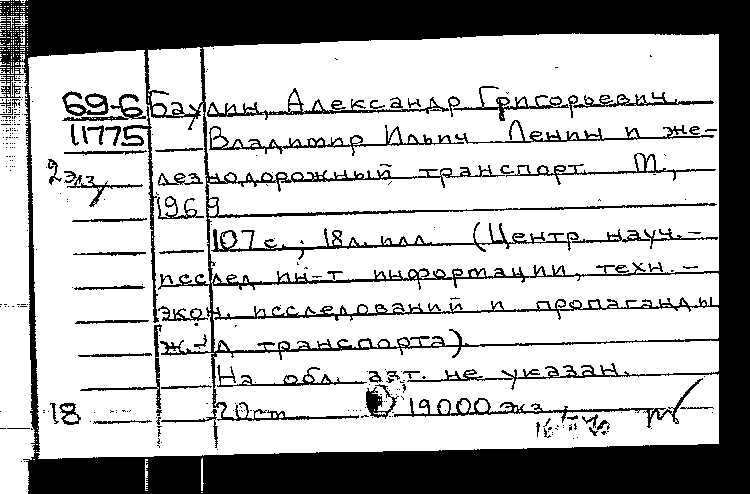 69-6 Баулин, Александр Григорьевич.
11775 Владимир Ильич Ленин и же-
2 экз лезнодорожный транспорт М.,
1969
107 с.; 18 л. илл. (Центр науч.-
исслед ин-т информации, техн.-
экон. исследований и пропаганды
ж.-д транспорта).
На обл. авт. не указан.
18 20 см 19000 экз